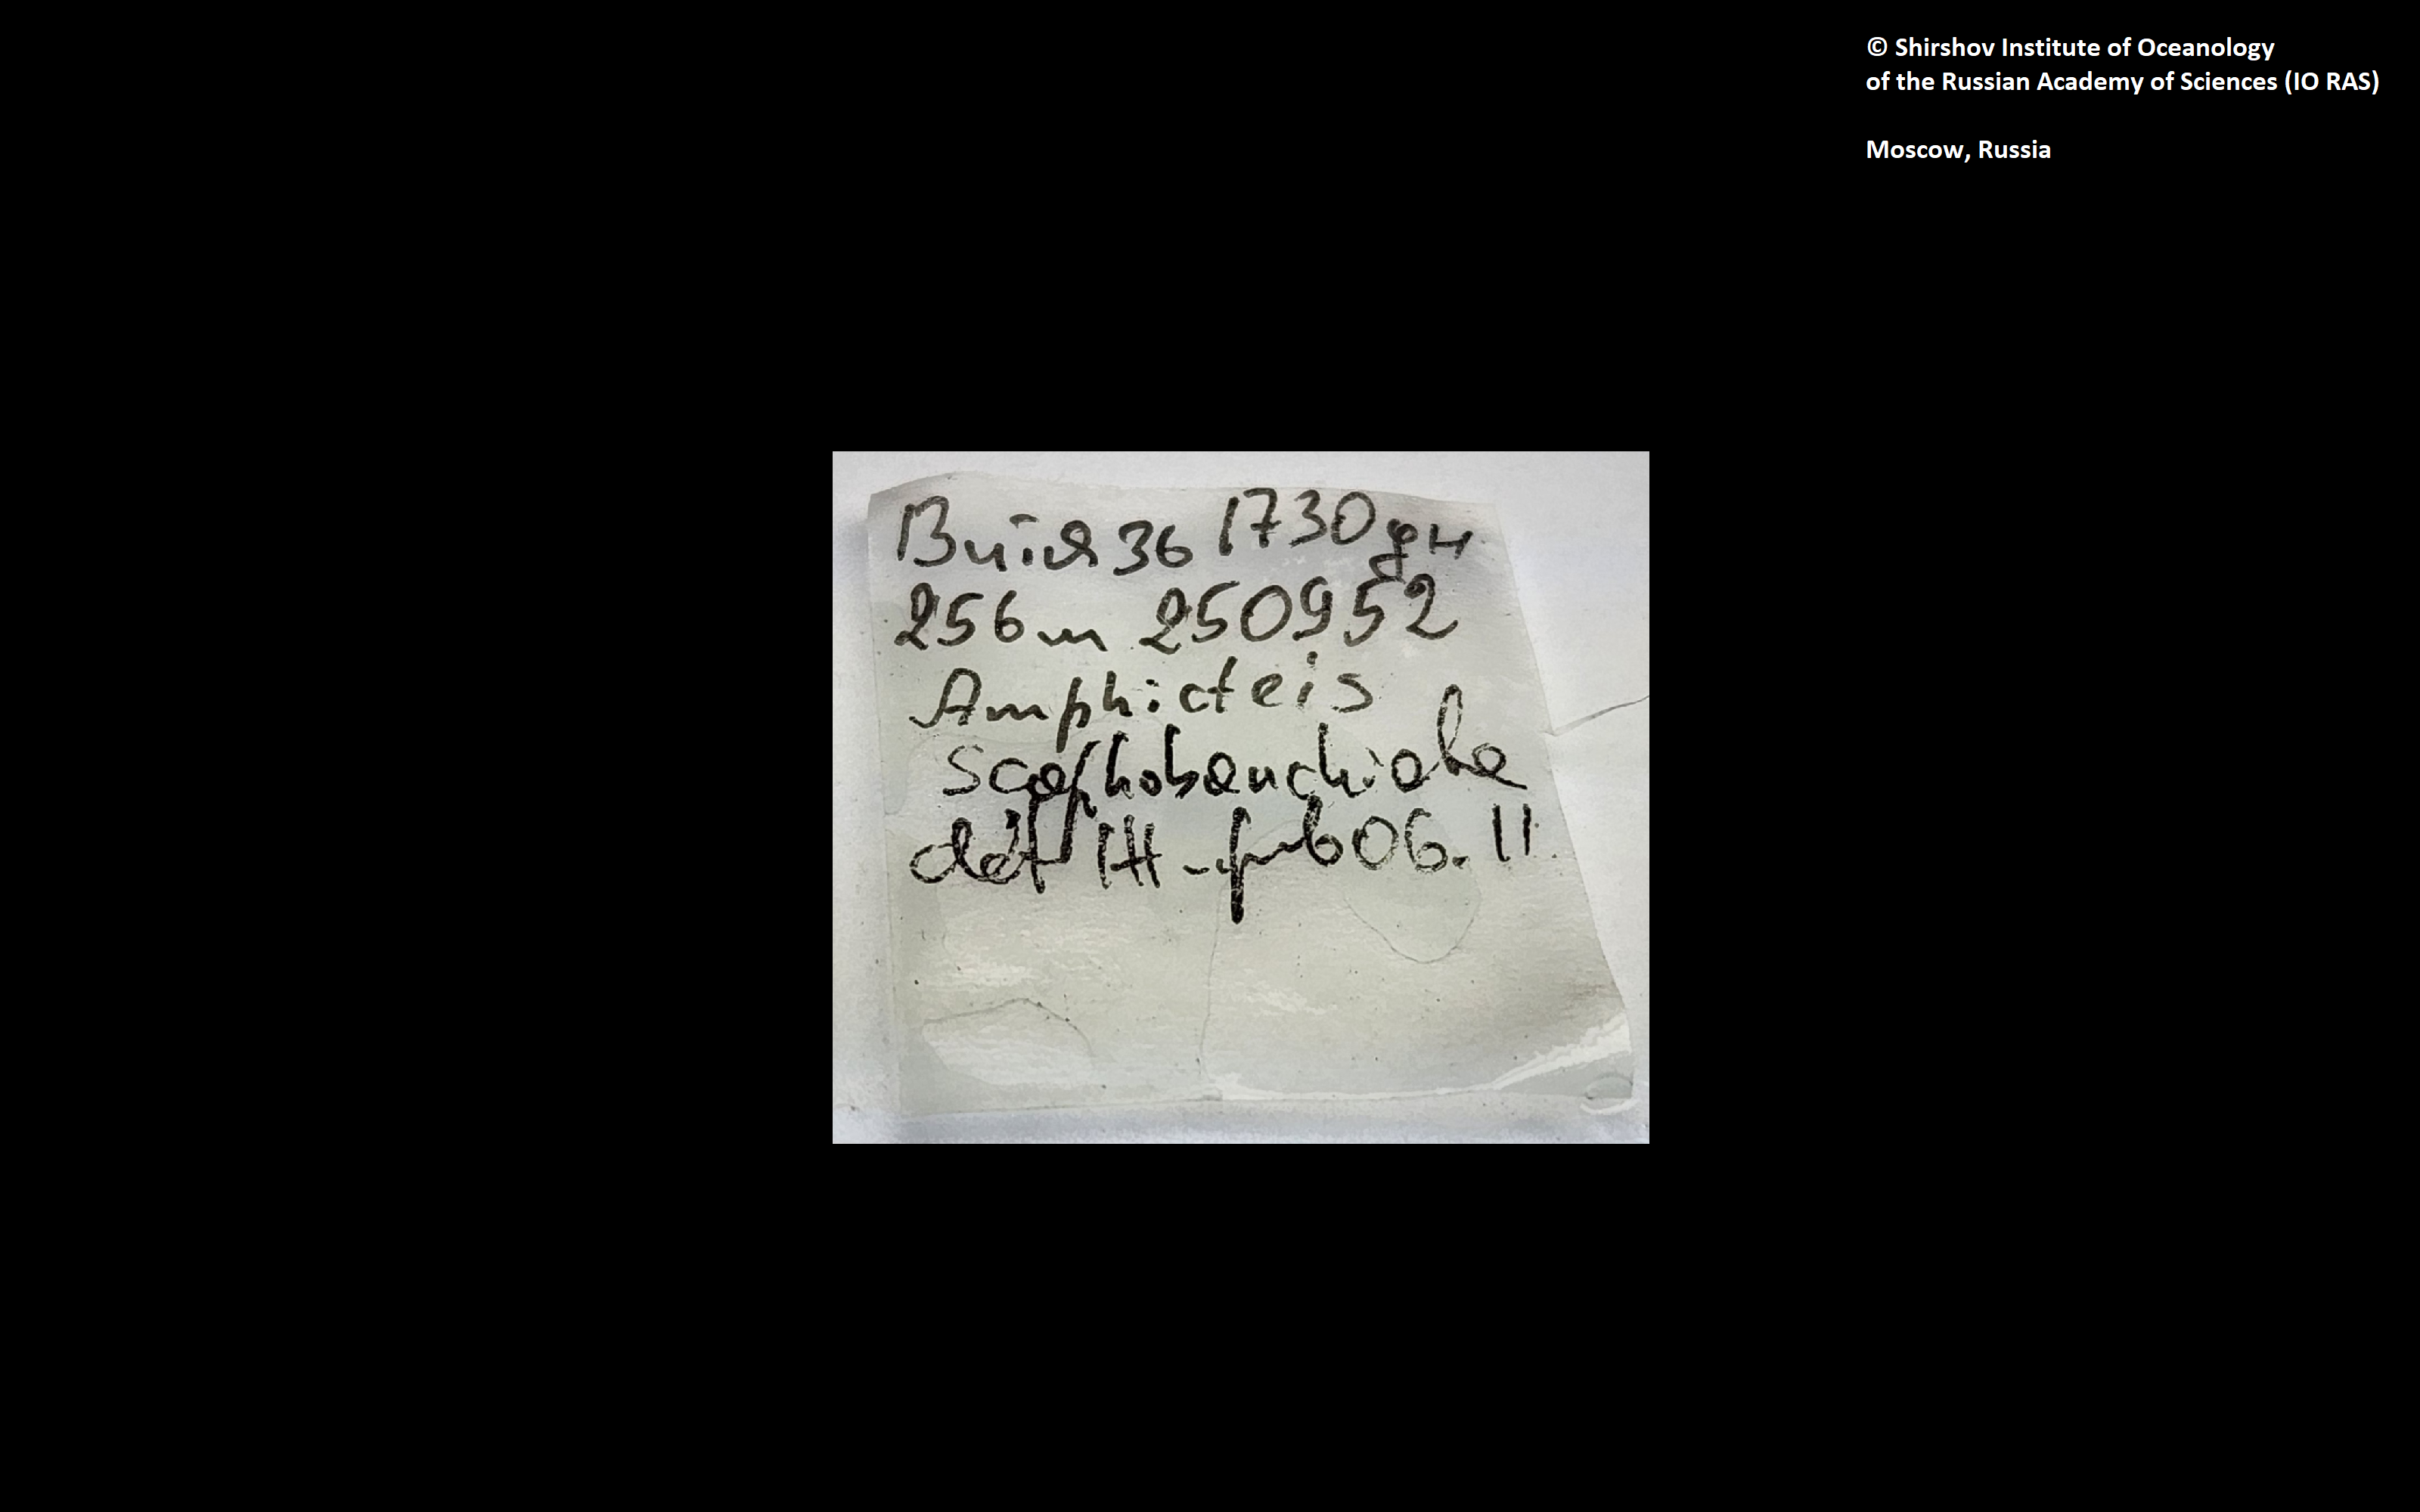 © Shirshov Institute of Oceanology
of the Russian Academy of Sciences (IO RAS)
Moscow, Russia
36 1730 дн
256 m 250952
Amphicteis
scaphobranchiata
det 06.11.